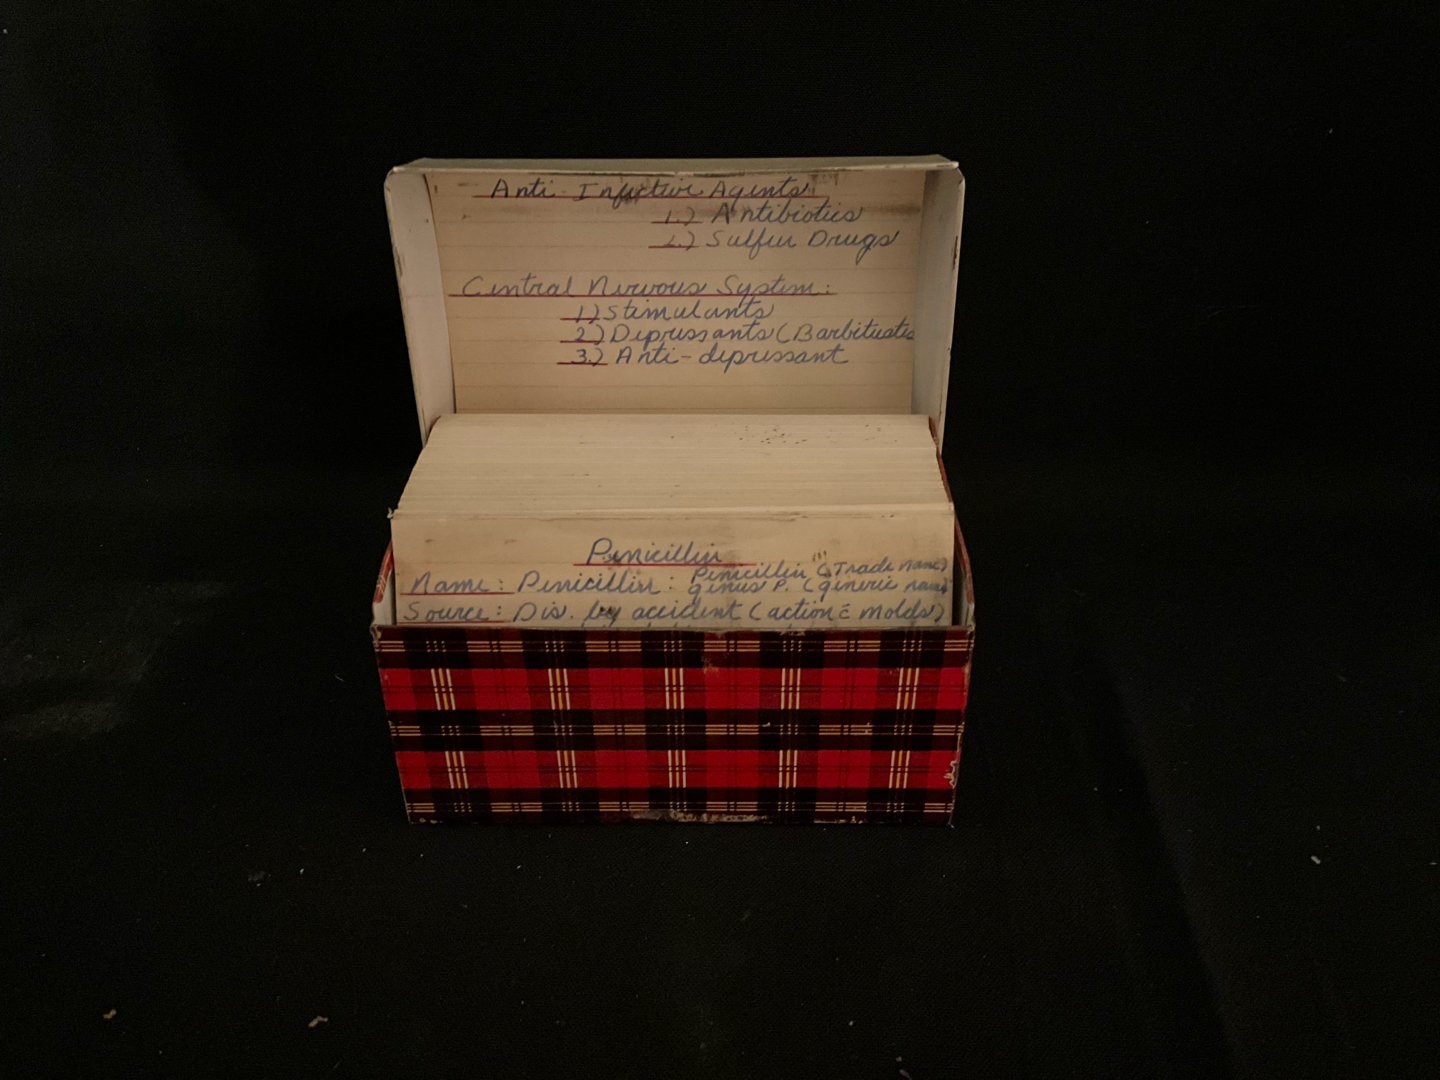 Anti-Infective Agents
1.) Antibiotics
2.) Sulfur Drugs
Central Nervous System:
1) Stimulants
2) Depressants (Barbituates
3.) Anti-depressant
Penicillin
Name: Penicillin: Penicillin (Trade name)
genus P. (generic name)
Source: Dis. by accident (action c̄ molds)